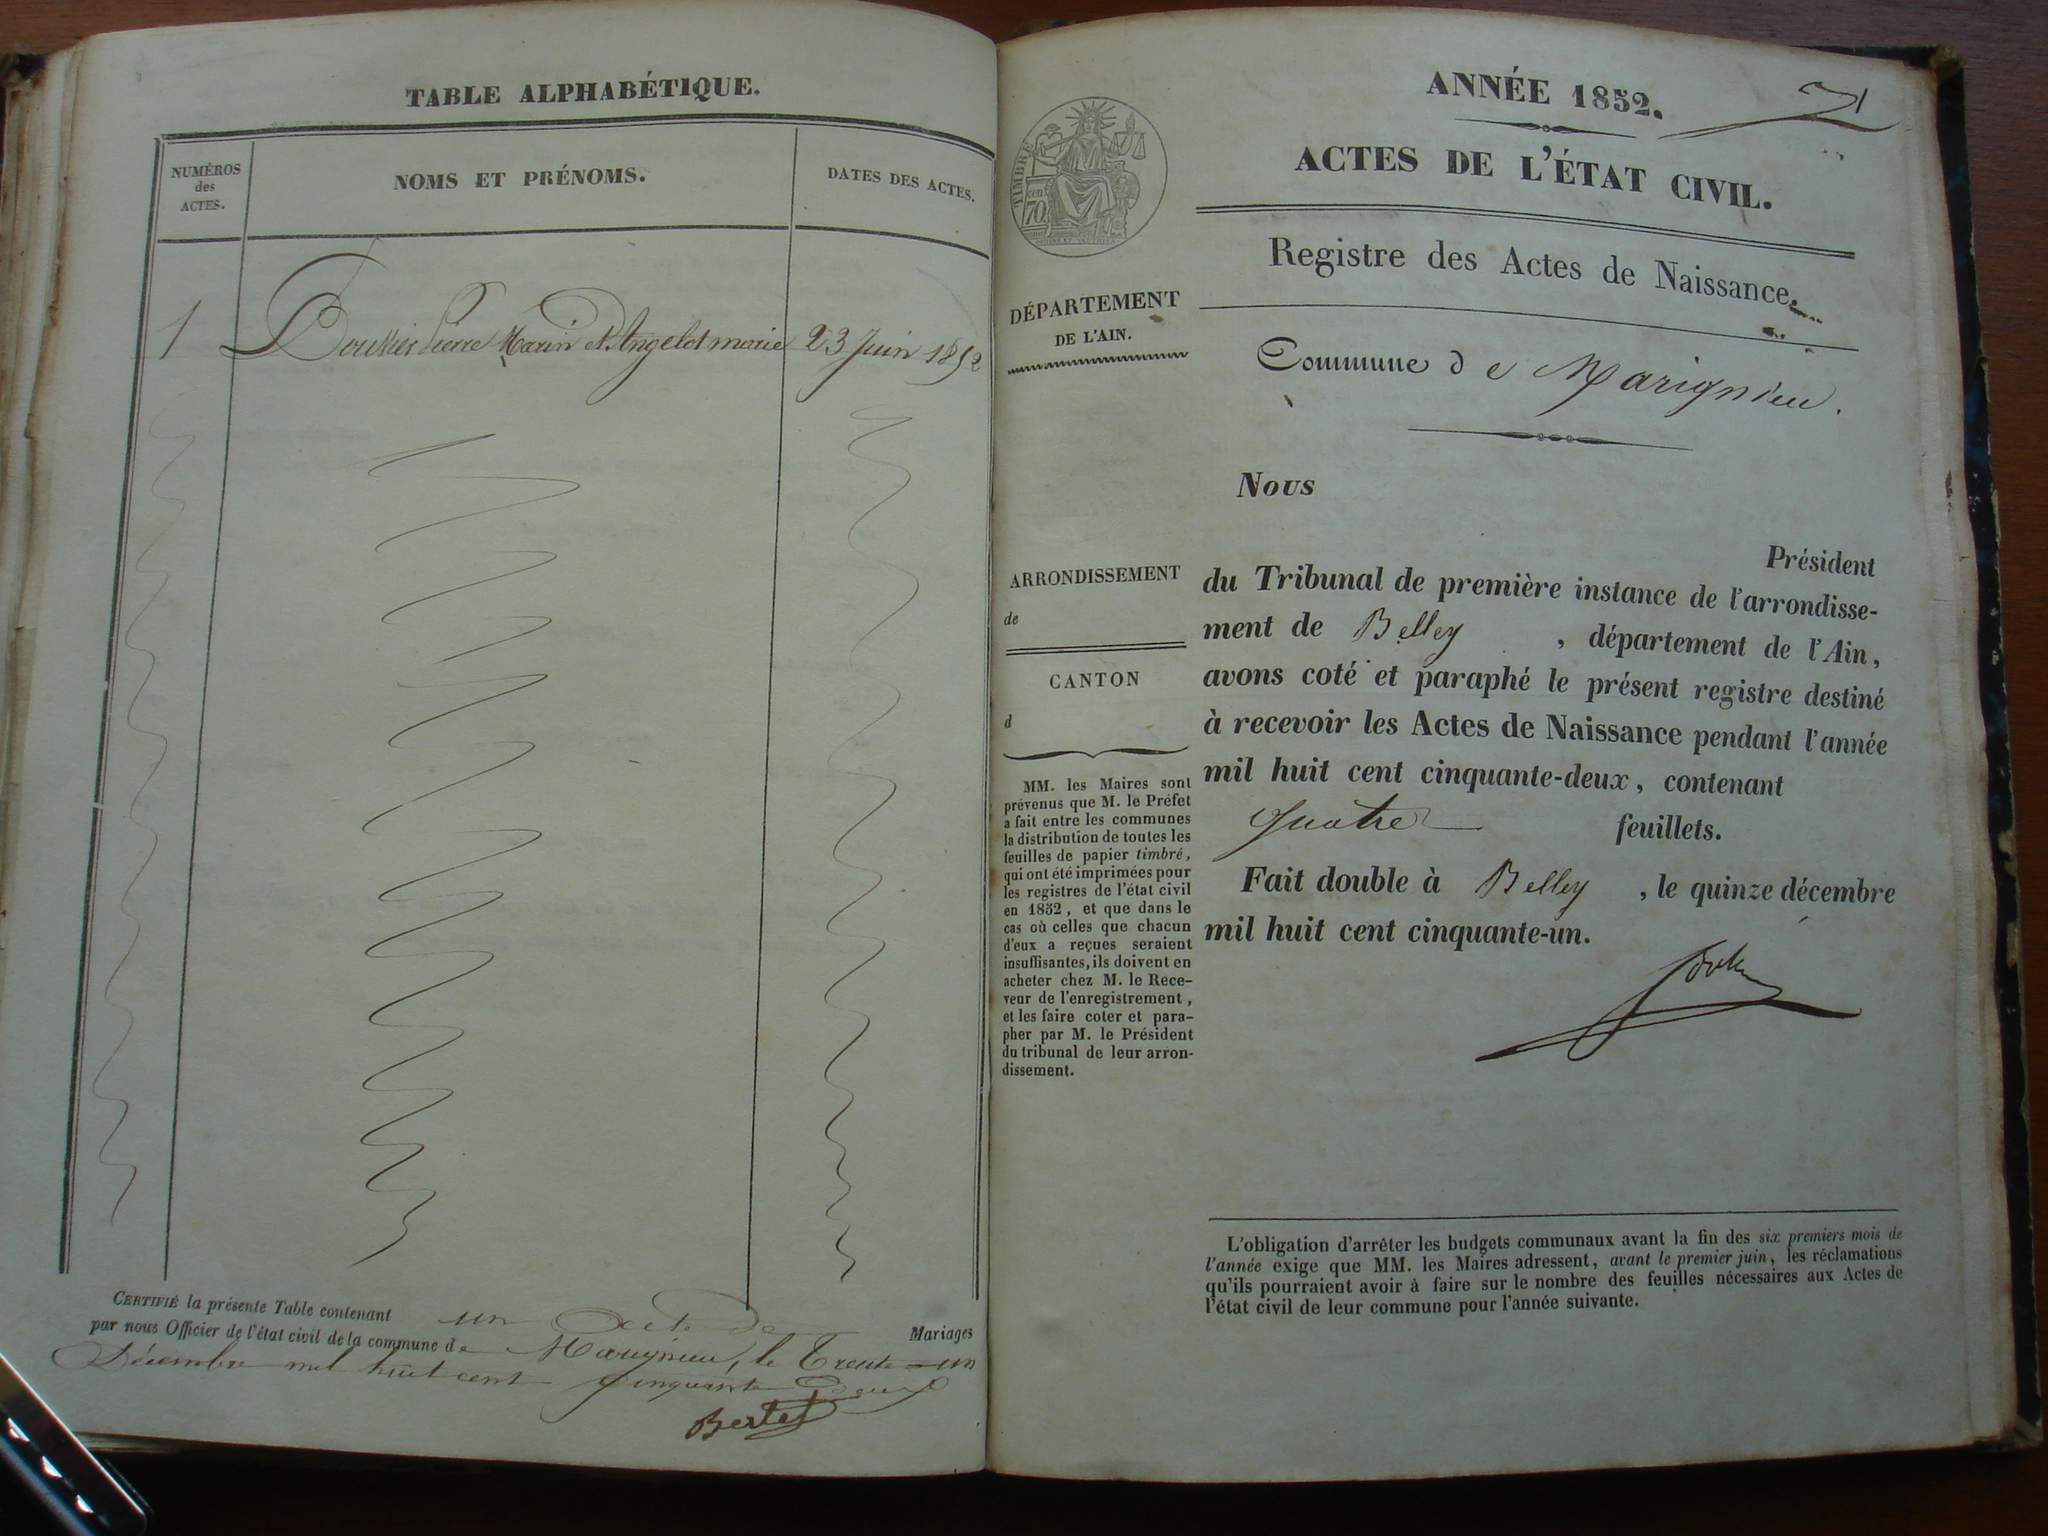 TABLE ALPHABÉTIQUE.
NUMÉROS
des
ACTES.
NOMS ET PRÉNOMS.
DATES DES ACTES.
1 Pierre Marin et Angelot marie 23 Juin 1852
CERTIFIÉ la présente Table contenant un acte de Mariages
par nous Officier de l'état civil de la commune de Marignieu, le Trente-un
Décembre mil huit cent cinquante deux
Bertet
ANNÉE 1852.
ACTES DE L'ÉTAT CIVIL.
Registre des Actes de Naissance.
TIMBRE
cent
70
DÉPARTEMENT
DE L'AIN.
Commune de Marignieu.
Nous
Président
du Tribunal de première instance de l'arrondisse-
ment de Belley , département de l'Ain,
avons coté et paraphé le présent registre destiné
à recevoir les Actes de Naissance pendant l'année
mil huit cent cinquante-deux, contenant
quatre feuillets.
Fait double à Belley , le quinze décembre
mil huit cent cinquante-un.
ARRONDISSEMENT
de
CANTON
d
MM. les Maires sont
prévenus que M. le Préfet
a fait entre les communes
la distribution de toutes les
feuilles de papier timbré,
qui ont été imprimées pour
les registres de l'état civil
en 1852, et que dans le
cas où celles que chacun
d'eux a reçues seraient
insuffisantes, ils doivent en
acheter chez M. le Rece-
veur de l'enregistrement,
et les faire coter et para-
pher par M. le Président
du tribunal de leur arron-
dissement.
L'obligation d'arrêter les budgets communaux avant la fin des six premiers mois de
l'année exige que MM. les Maires adressent, avant le premier juin, les réclamations
qu'ils pourraient avoir à faire sur le nombre des feuilles nécessaires aux Actes de
l'état civil de leur commune pour l'année suivante.